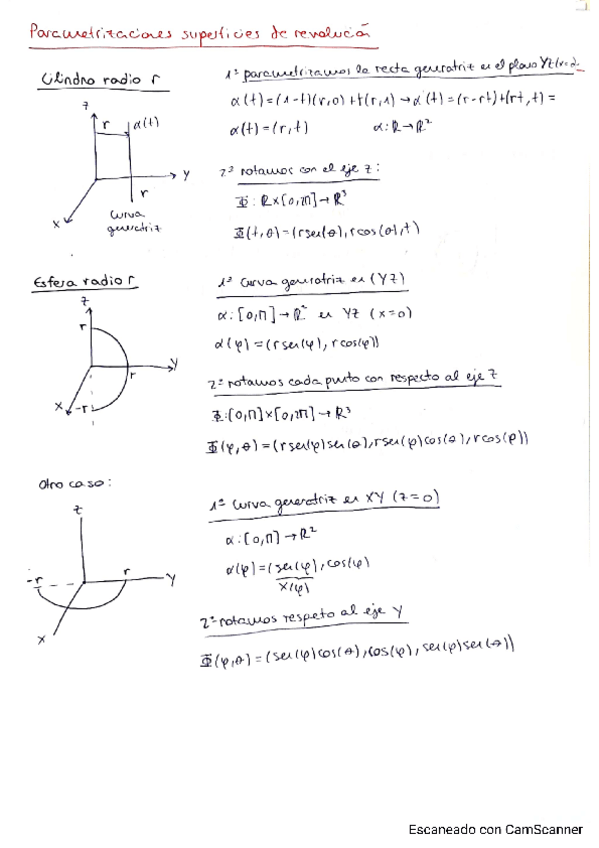 Parametrizaciones superficies de revolución
Cilindro radio r
1º parametrizamos la recta generatriz en el plano YZ
α(t)=(1-t)(r,0)+t(r,1)→α(t)=(r-rt)+(rt,t)=
α(t)=(r,t) α:R→R²
z
r
α(t)
y
r
x
curva
generatriz
2º rotamos con el eje z:
Φ:R×[0,2π]→R³
Φ(t,θ)=(rsen(θ),rcos(θ),t)
Esfera radio r
1º Curva generatriz en (YZ)
z
r
y
r
x
-r
α:[0,π]→R² en YZ (x=0)
α(φ)=(rsen(φ),rcos(φ))
2º rotamos cada punto con respecto al eje z
Φ:[0,π]×[0,2π]→R³
Φ(φ,θ)=(rsen(φ)sen(θ),rsen(φ)cos(θ),rcos(φ))
Otro caso:
1º Curva generatriz en XY (z=0)
z
-r
r
y
x
α:[0,π]→R²
α(φ)=(sen(φ),cos(φ))
x(φ)
2º rotamos respeto al eje Y
Φ(φ,θ)=(sen(φ)cos(θ),cos(φ),sen(φ)sen(θ))
Escaneado con CamScanner